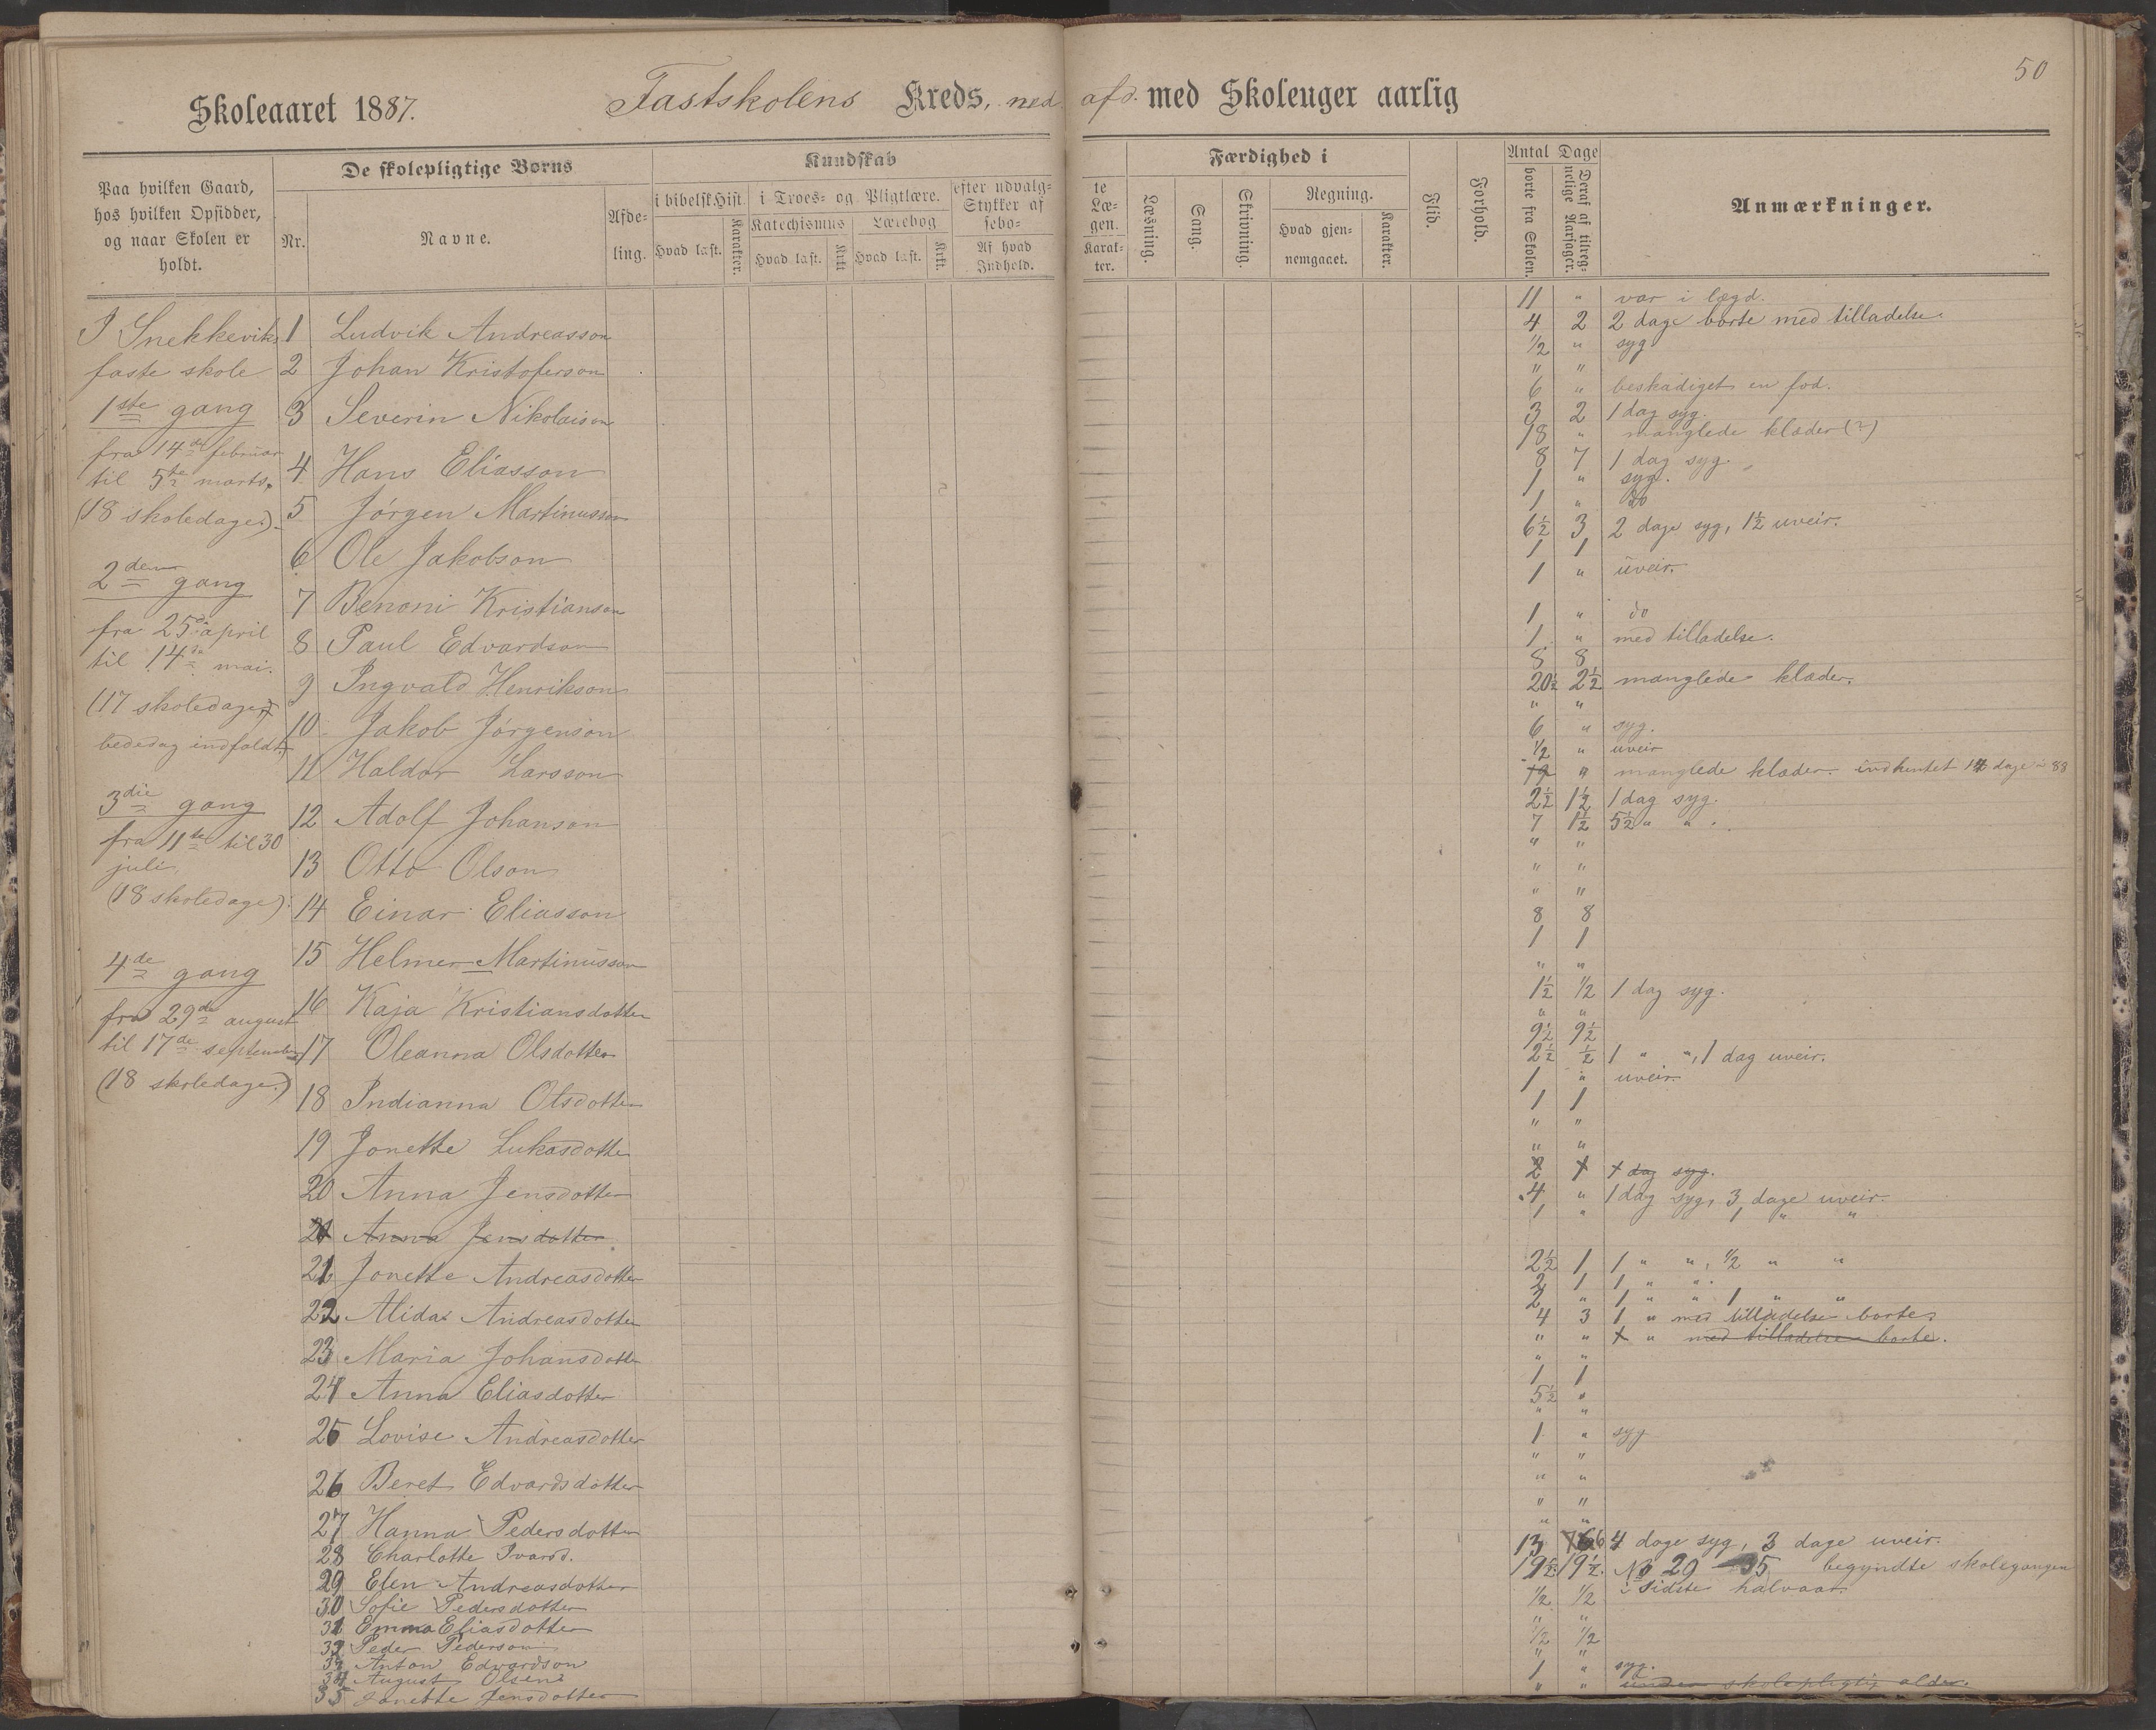 50
Skoleaaret 1887. Fastskolens Kreds, ned. afd. med Skoleuger aarlig
Paa hvilken Gaard, hos hvilken Opsidder, og naar Skolen er holdt.
De skolepligtige Børns
Nr.
Navne.
Afdeling.
Kundskab
i bibelsk Hist.
Hvad læst.
Karakter.
i Troes- og Pligtlære.
Katechismus
Hvad læst.
Krkt.
Lærebog
Hvad læst.
Krkt.
efter udvalg-
Stykker af
sebo=
Af hvad
Indhold.
te
Læ-
gen.
Karak-
ter.
Færdighed i
Læsning.
Sang.
Skrivning.
Regning.
Hvad gjen-
nemgaaet.
Karakter.
Flid.
Forhold.
Antal Dage
borte fra Skolen.
Deraf af tilreg-
nelige Aarsager.
Anmærkninger.
I Snekkevik
faste skole
1ste gang
fra 14de februar
til 5te marts.
(18 skoledage).
2den gang
fra 25de april
til 14de mai.
(17 skoledage)
bededag indfaldt.
3die gang
fra 11te til 30
juli.
(18 skoledage).
4de gang
fra 29de august
til 17de september
(18 skoledage.)
1 Ludvik Andreasson
2 Johan Kristoferson
3 Severin Nikolaison
4 Hans Eliasson
5 Jørgen Martinusson
6 Ole Jakobson
7 Benoni Kristianson
8 Paul Edvardson
9 Ingvald Henrikson
10 Jakob Jørgenson
11 Haldor Larsson
12 Adolf Johanson
13 Otto Olson
14 Einar Eliasson
15 Helmer Martinusson
16 Kaja Kristiansdotter
17 Oleanna Olsdotter
18 Indianna Olsdotter
19 Jonette Lukasdotter
20 Anna Jensdotter
21 Anna Jensdotter
21 Jonette Andreasdotter
22 Alida Andreasdotter
23 Maria Johansdotter
24 Anna Eliasdotter
25 Lovise Andreasdotter
26 Beret Edvardsdotter
27 Hanna Pedersdotter
28 Charlotte Ivarsd.
29 Elen Andreasdotter
30 Sofie Pedersdotter
31 Emma Eliasdotter
32 Peder Pederson
33 Anton Edvardson
34 August Olsen
35 Jonette Jensdotter
11 " var i lægd.
4 2 2 dage borte med tilladelse.
1/2 " syg
" "
6 " beskadiget en fod.
3 2 1 dag syg.
18 " manglede klæder (?)
8 7 1 dag syg.
1 " syg.
1 " do
6 1/2 3 2 dage syg, 1 1/2 uveir.
1 1
1 " uveir.
1 " do
1 " med tilladelse.
8 8
20 1/2 2 1/2 manglede klæder.
" "
6 " syg.
1/2 " uveir
12 " manglede klæder. indhentet 12 dage i 88
2 1/2 1 1/2 1 dag syg.
7 1 1/2 5 1/2 " "
" "
" "
" "
8 8
1 1
" "
1 1/2 1/2 1 dag syg.
" "
9 1/2 9 1/2
2 1/2 1/2 1 " ", 1 dag uveir.
1 " uveir.
1 1
" "
" "
2 1 1 dag syg.
4 " 1 dag syg, 3 dage uveir.
1 " 1 " "
2 1/2 1 1 " ", 1/2 " "
2 1 1 " ".
2 " 1 " " 1 " "
4 3 1 " med tilladelse borte.
" " 1 " med tilladelse borte.
" "
1 1
5 1/2 "
" "
1 " syg
" "
" "
" "
" "
13 6 4 dage syg, 3 dage uveir.
19 1/2 19 1/2. No 29 - 35 begyndte skolegangen
1/2 1/2 i sidste halvaar.
" "
1/2 1/2
" "
1 " syg.
" " under skolepligtig alder.